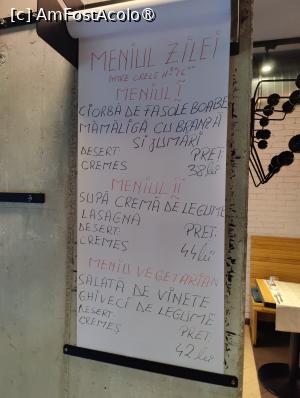 [c] AmFostAcolo®
MENIUL ZILEI
INTRE ORELE
MENIUL I
CIORBĂ DE FASOLE BOABE
MĂMĂLIGĂ CU BRANZĂ
SI JUMĂRI
DESERT: PREȚ
CREMEȘ 38 lei
MENIUL II
SUPĂ CREMĂ DE LEGUME
LASAGNA
DESERT: PREȚ:
CREMEȘ 44 lei
MENIU VEGETARIAN
SALATĂ DE VINETE
GHIVECI DE LEGUME
DESERT: PREȚ:
CREMEȘ 42 lei